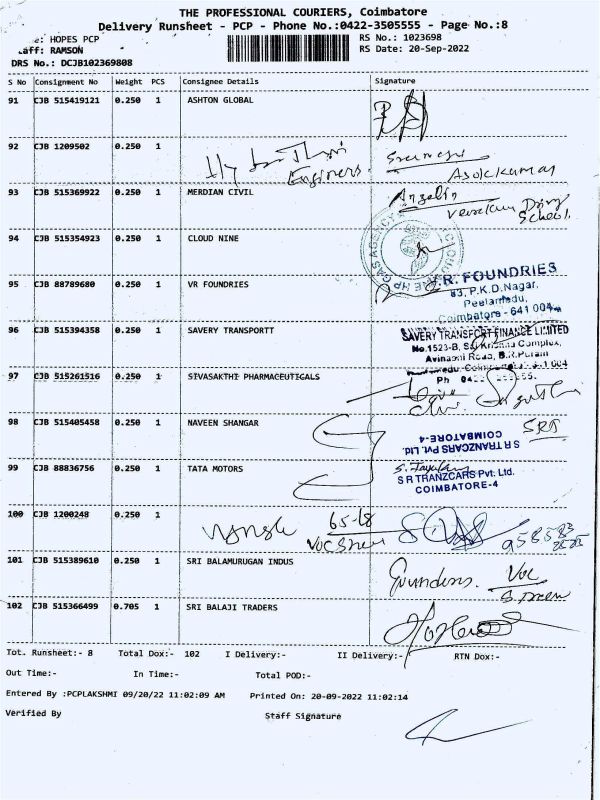 THE PROFESSIONAL COURIERS, Coimbatore
Delivery Runsheet - PCP - Phone No.:0422-3505555 - Page No.:8
e: HOPES PCP
RS No.: 1023698
aff: RAMSON
RS Date: 20-Sep-2022
DRS No.: DCJB102369808
S No Consignment No Weight PCS Consignee Details Signature
91 CJB 515419121 0.250 1 ASHTON GLOBAL
92 CJB 1209502 0.250 1
Engineers
Asokkumar
93 CJB 515369922 0.250 1 MERDIAN CIVIL
Angelin
School
94 CJB 515354923 0.250 1 CLOUD NINE
GAS AGENCY
95 CJB 88789680 0.250 1 VR FOUNDRIES
.R. FOUNDRIES
83, P.K.D.Nagar,
Peelamedu,
Coimbatore - 641 004
96 CJB 515394358 0.250 1 SAVERY TRANSPORTT
SAVERY TRANSPORT FINANCE LIMITED
No.1523-B, Sri Krishna Complex,
Avinashi Road, B.R.Puram
Ph 0422
97 CJB 515261516 0.250 1 SIVASAKTHI PHARMACEUTICALS
98 CJB 515405458 0.250 1 NAVEEN SHANGAR
SRT
S R TRANZCARS Pvt. Ltd.
COIMBATORE-4
99 CJB 88836756 0.250 1 TATA MOTORS
S R TRANZCARS Pvt. Ltd.
COIMBATORE-4
100 CJB 1200248 0.250 1
65-18
101 CJB 515389610 0.250 1 SRI BALAMURUGAN INDUS
VOC
102 CJB 515366499 0.705 1 SRI BALAJI TRADERS
Tot. Runsheet:- 8 Total Dox:- 102 I Delivery:- II Delivery:- RTN Dox:-
Out Time:- In Time:- Total POD:-
Entered By :PCPLAKSHMI 09/20/22 11:02:09 AM Printed On: 20-09-2022 11:02:14
Verified By Staff Signature